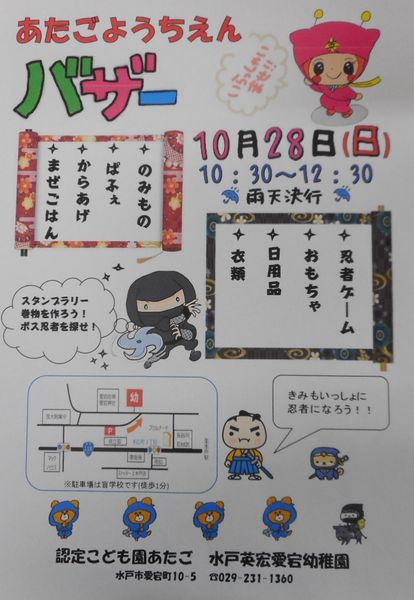 あたごようちえん
バザー
いらっしゃい
ませ!!
10月28日(日)
10:30～12:30
雨天決行
✦のみもの
✦ぱふぇ
✦からあげ
✦まぜごはん
✦忍者ゲーム
✦おもちゃ
✦日用品
✦衣類
スタンプラリー
巻物を作ろう!
ボス忍者を探せ!
きみもいっしょに
忍者になろう!!
幼
P
マック
ハウス
※駐車場は盲学校です(徒歩1分)
認定こども園あたご 水戸英宏愛宕幼稚園
水戸市愛宕町10-5 ☎029-231-1360